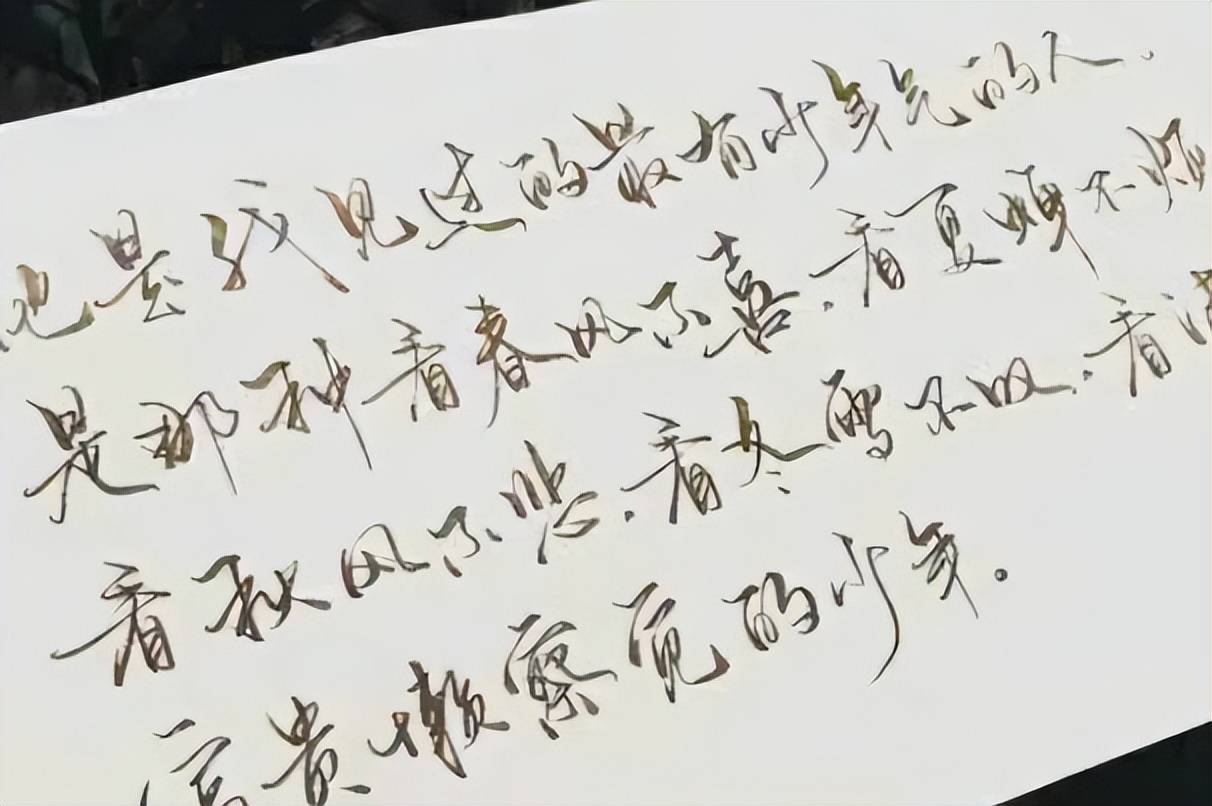 也是我见过的最有少年气的人.
是那种看春风不喜.看夏蝉不烦
看秋风不悲.看冬雪不叹.看满
富贵懒察觉的少年。